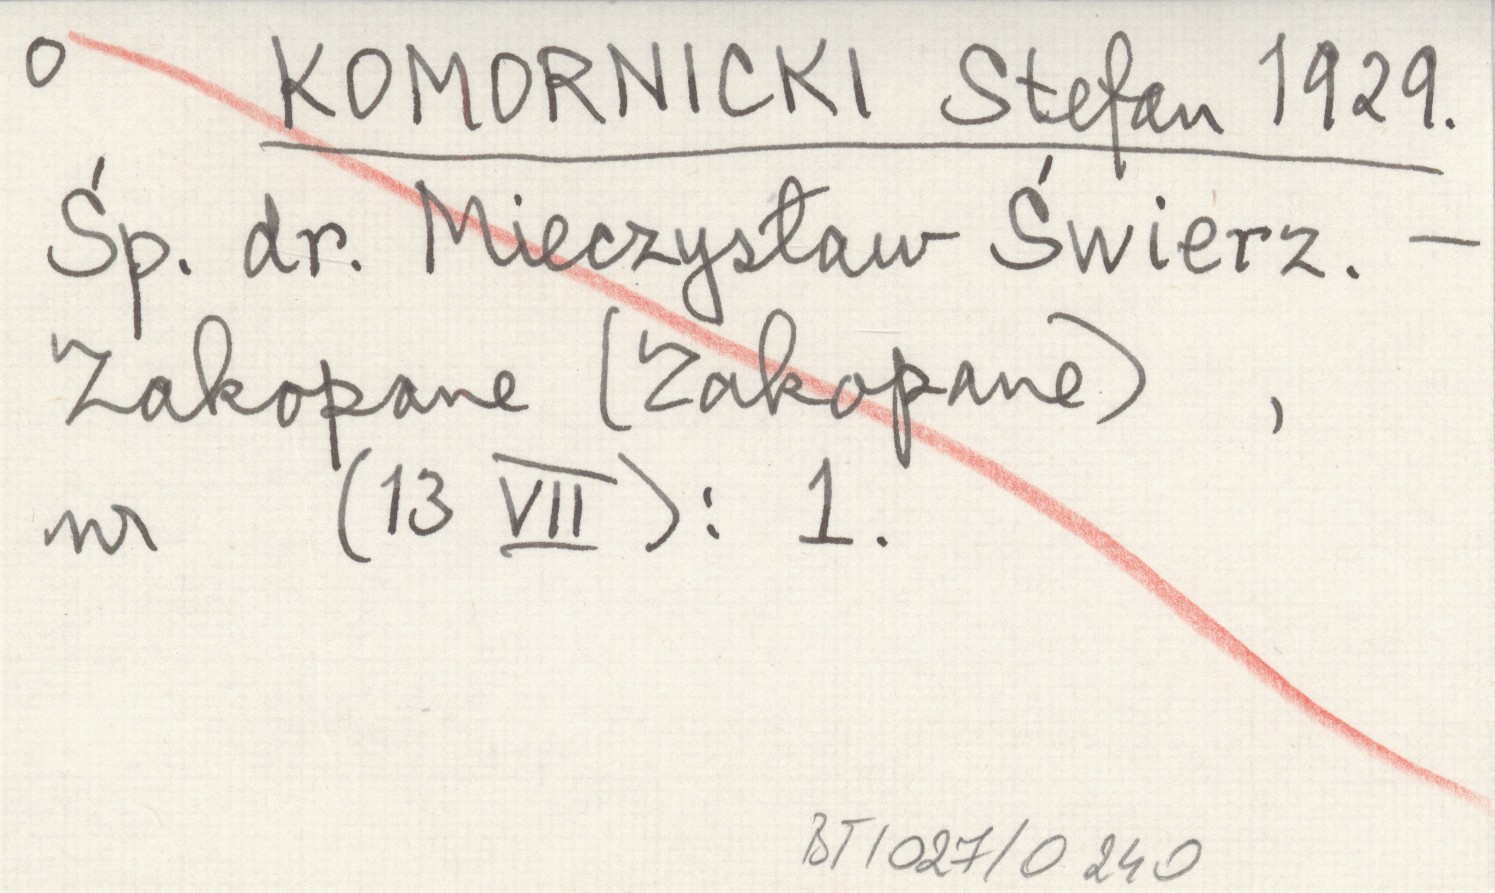 o KOMORNICKI Stefan 1929.
Śp. dr. Mieczysław Świerz. —
Zakopane (Zakopane) ,
nr (13 VII): 1.
BT/027/0 240